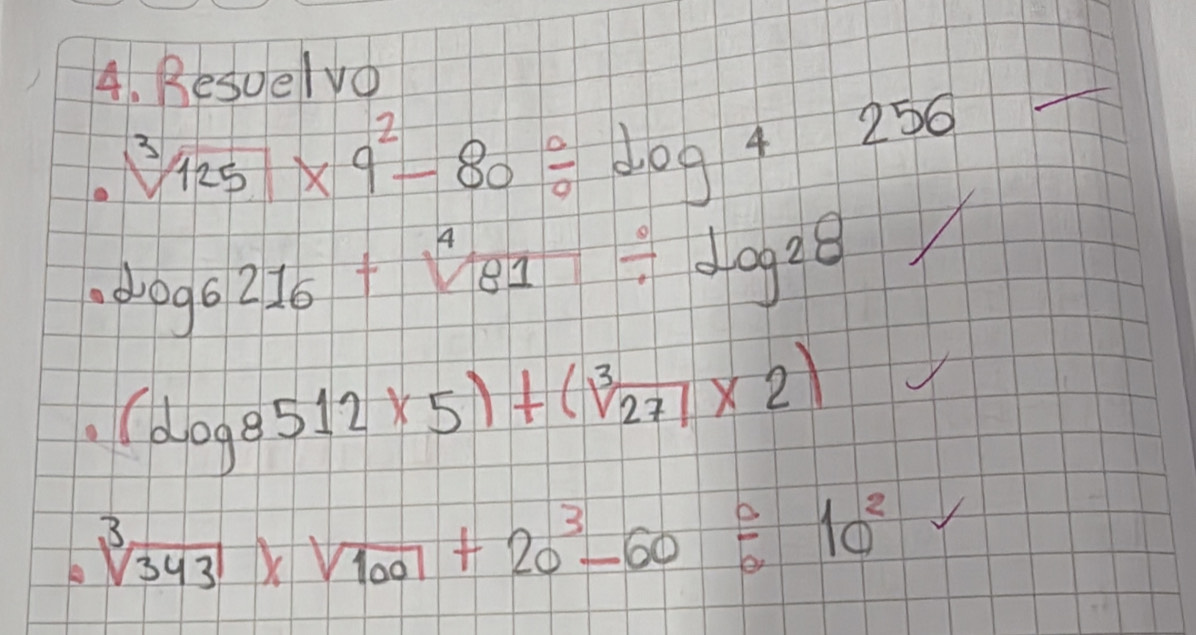 4. Resuelvo
. ∛125 × 9² − 80 ÷ log 4 256
. log6 216 + ∜81 ÷ log28
. (log8 512 × 5) + (∛27 × 2)
. ∛343 × √100 + 20³ − 60 ÷ 10²